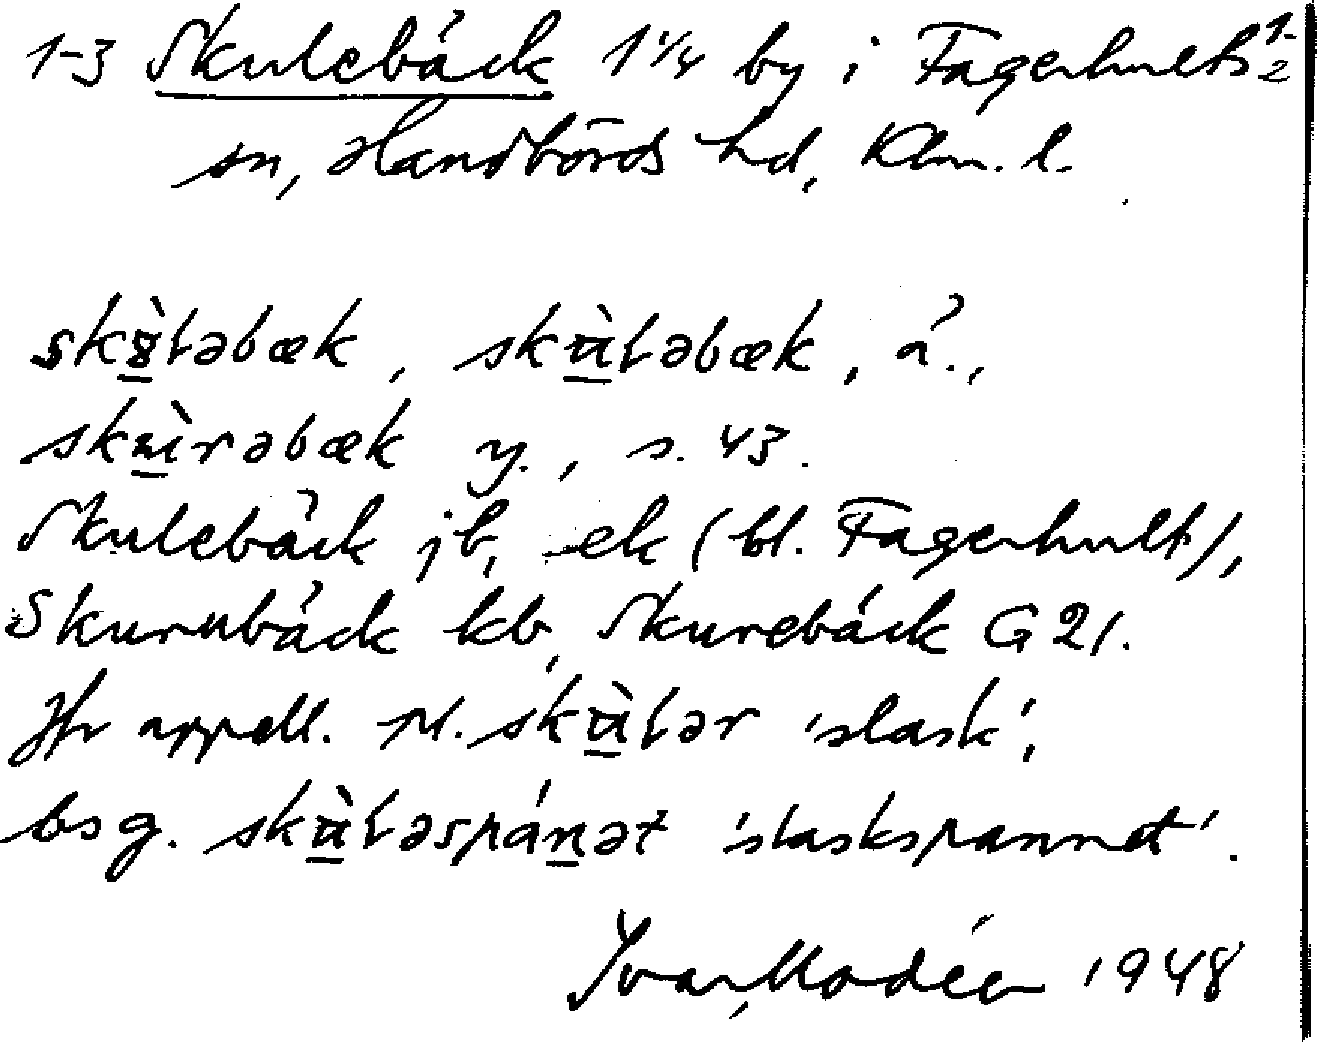 1-3 Skulebäck 1 1/4 by i Fagerhults 1-2
sn, Handbörds hd, Klm. l.
skùləbæk, skùləbæk, ä.,
skùrəbæk y., s. 43.
Skulebäck jb, ek (bl. Fagerhult),
Skurubäck kb, Skurebäck G 21.
Jfr appell. pl. skùlər 'slask',
bsg. skùləspánət 'slaskspannet'.
Ivar Modéer 1948